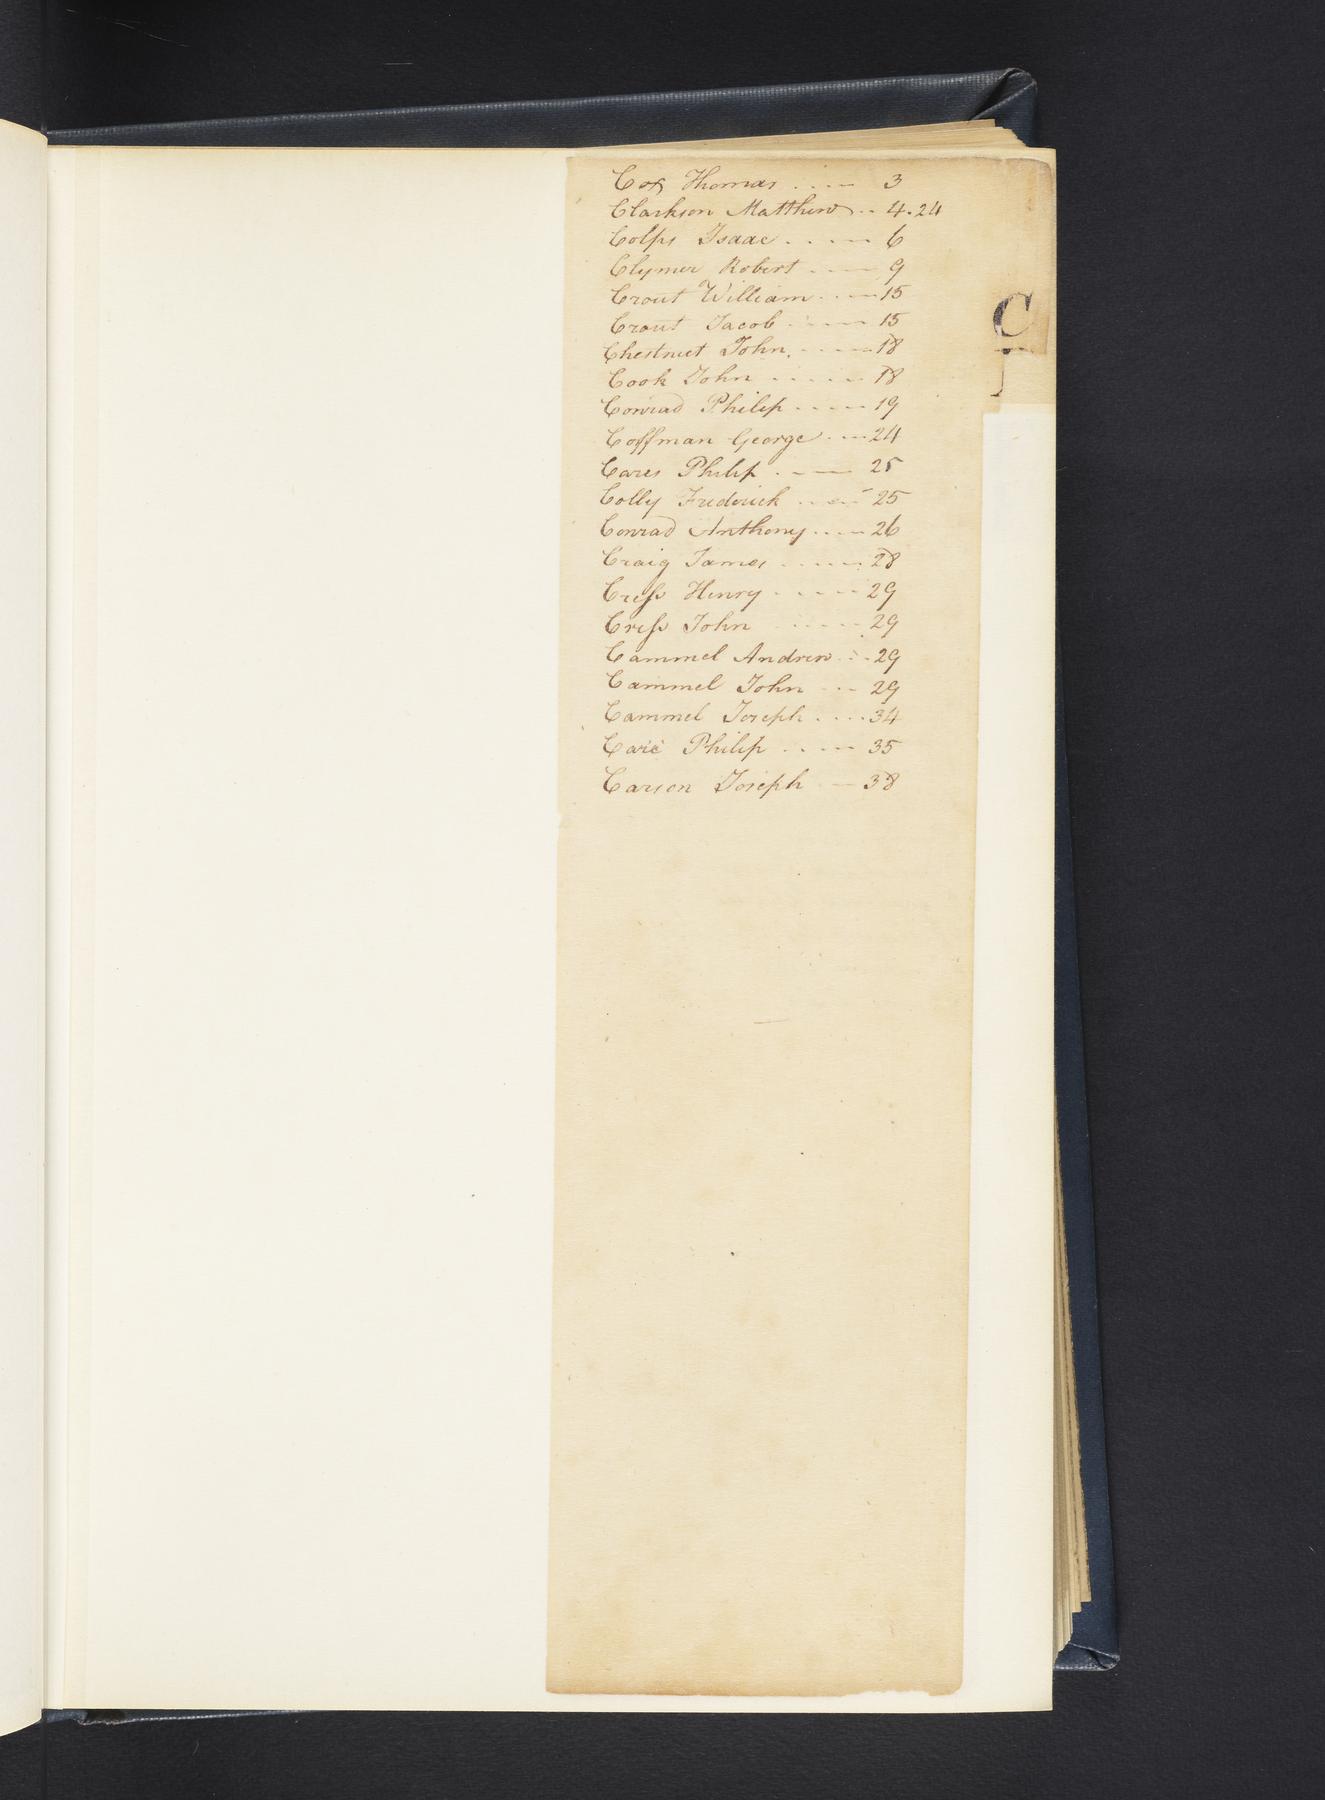 Cox Thomas ..... 3
Clarkson Matthew .. 4.24
Colps Isaac ..... 6
Clymer Robert ..... 9
Crout William ..... 15
Crout Jacob ..... 15
Chestnut John ..... 18
Cook John ..... 18
Conrad Philip ..... 19
Coffman George ... 24
Cares Philip .... 25
Colly Fredrick .... 25
Conrad Anthony .... 26
Craig James ..... 28
Cress Henry ..... 29
Cress John ..... 29
Cammel Andrew ... 29
Cammel John ... 29
Cammel Joseph .... 34
Care Philip ..... 35
Carson Joseph ... 38
C